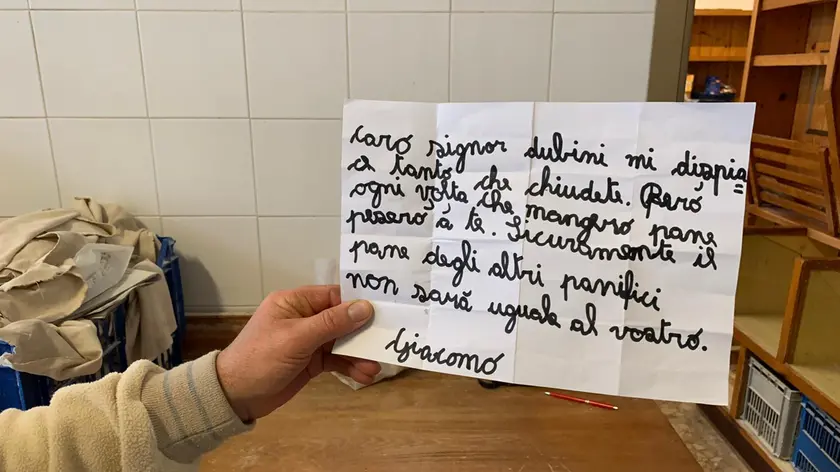 Caro signor dubini mi dispia=
ce tanto che chiudete. Però
ogni volta che mangerò pane
peserò a te. Sicuramente il
pane degli altri panifici
non sarà uguale al vostro.
Giacomo